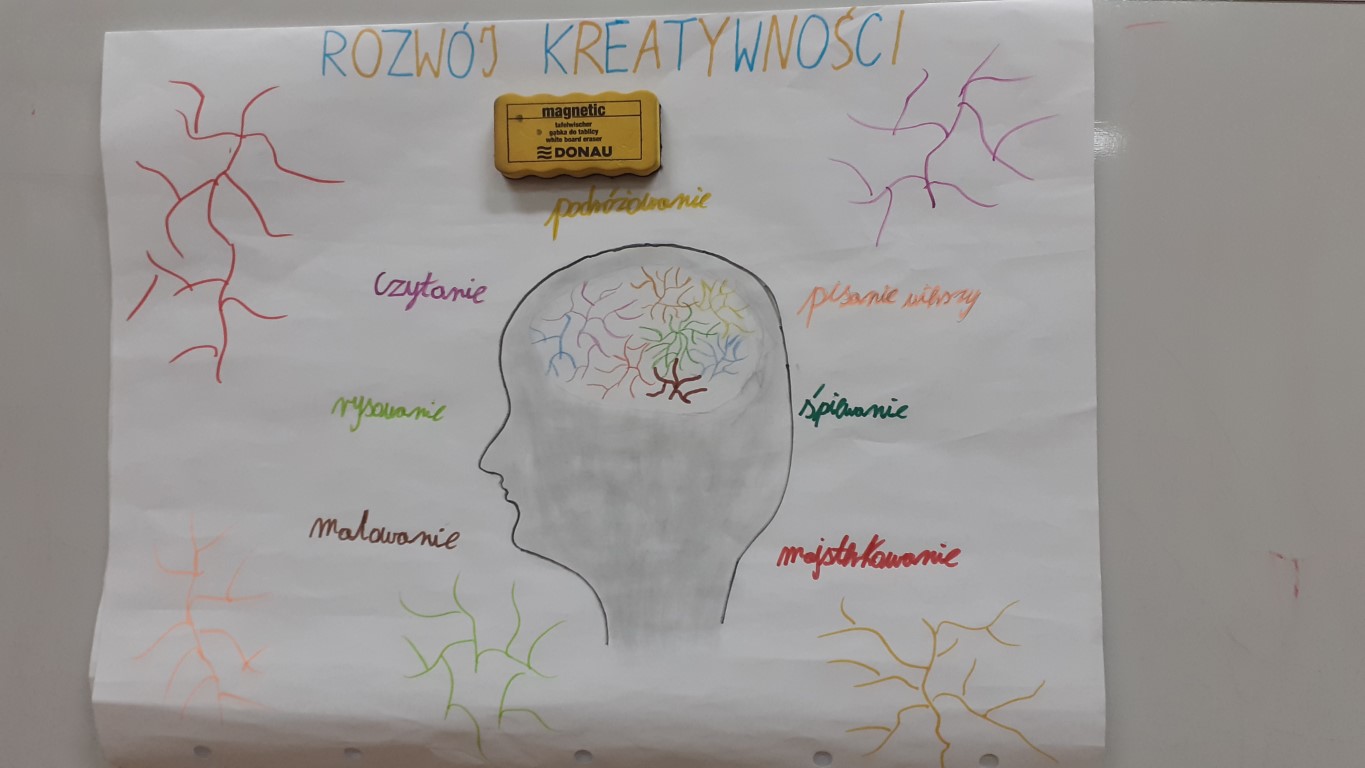 ROZWÓJ KREATYWNOŚCI
magnetic
tafelwischer
gąbka do tablicy
white board eraser
DONAU
podróżowanie
czytanie
pisanie wierszy
rysowanie
śpiewanie
malowanie
majsterkowanie